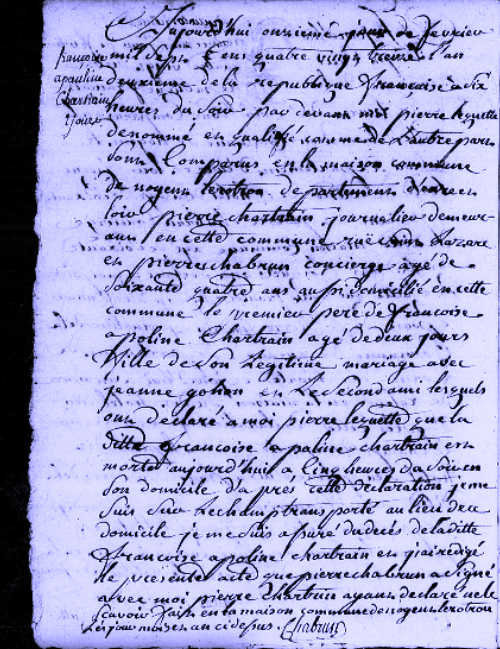 Aujourd'hui onzieme jour de fevrier
francoise
apauline
Chartrain
2 jours
mil sept cens quatre vingt treize l'an
deuxieme de la republique francoise a six
heures du soir par devant moi pierre lequette
denommé en qualité comme de l'autre part
sont Comparus en la maison commune
de nogent lerotrou departement d'eure en
loir pierre chartrain journalier demeur
ant en cette commune rue Lazare
et pierre chabrun concierge agé de
Soixante quatre ans aussi domicilié en cette
commune le premier pere de francoise
apoline Chartrain agé de deux jours
fille de son Legitime mariage avec
jeanne et le Second ami lesquels
ont declaré a moi pierre lequette que la
ditte francoise apaline chartrain est
morte aujourd'hui a Cinq heures du Soir en
son domicile d'après cette déclaration je me
suis sur Lechamp transporté au lieu de ce
domicile je me suis assuré du decés de laditte
francoise apoline chartrain et j'ai rédigé
le present acte que pierre chabrun a signé
avec moi pierre Chartrain ayant declaré ne le
Scavoir fait en la maison commune de nogent lerotrou
Les jour mois et an ci dessus. Chabrun